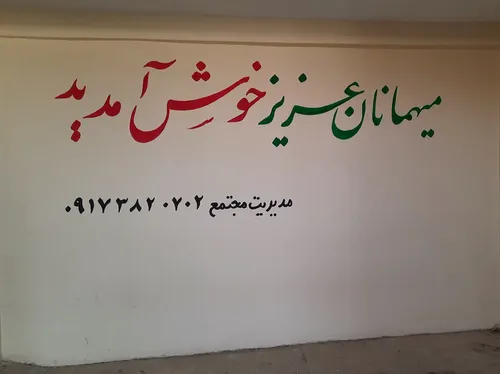 میهمانان عزیز خوش آمدید
مدیریت مجتمع ۰۹۱۷۳۸۲۰۷۰۲